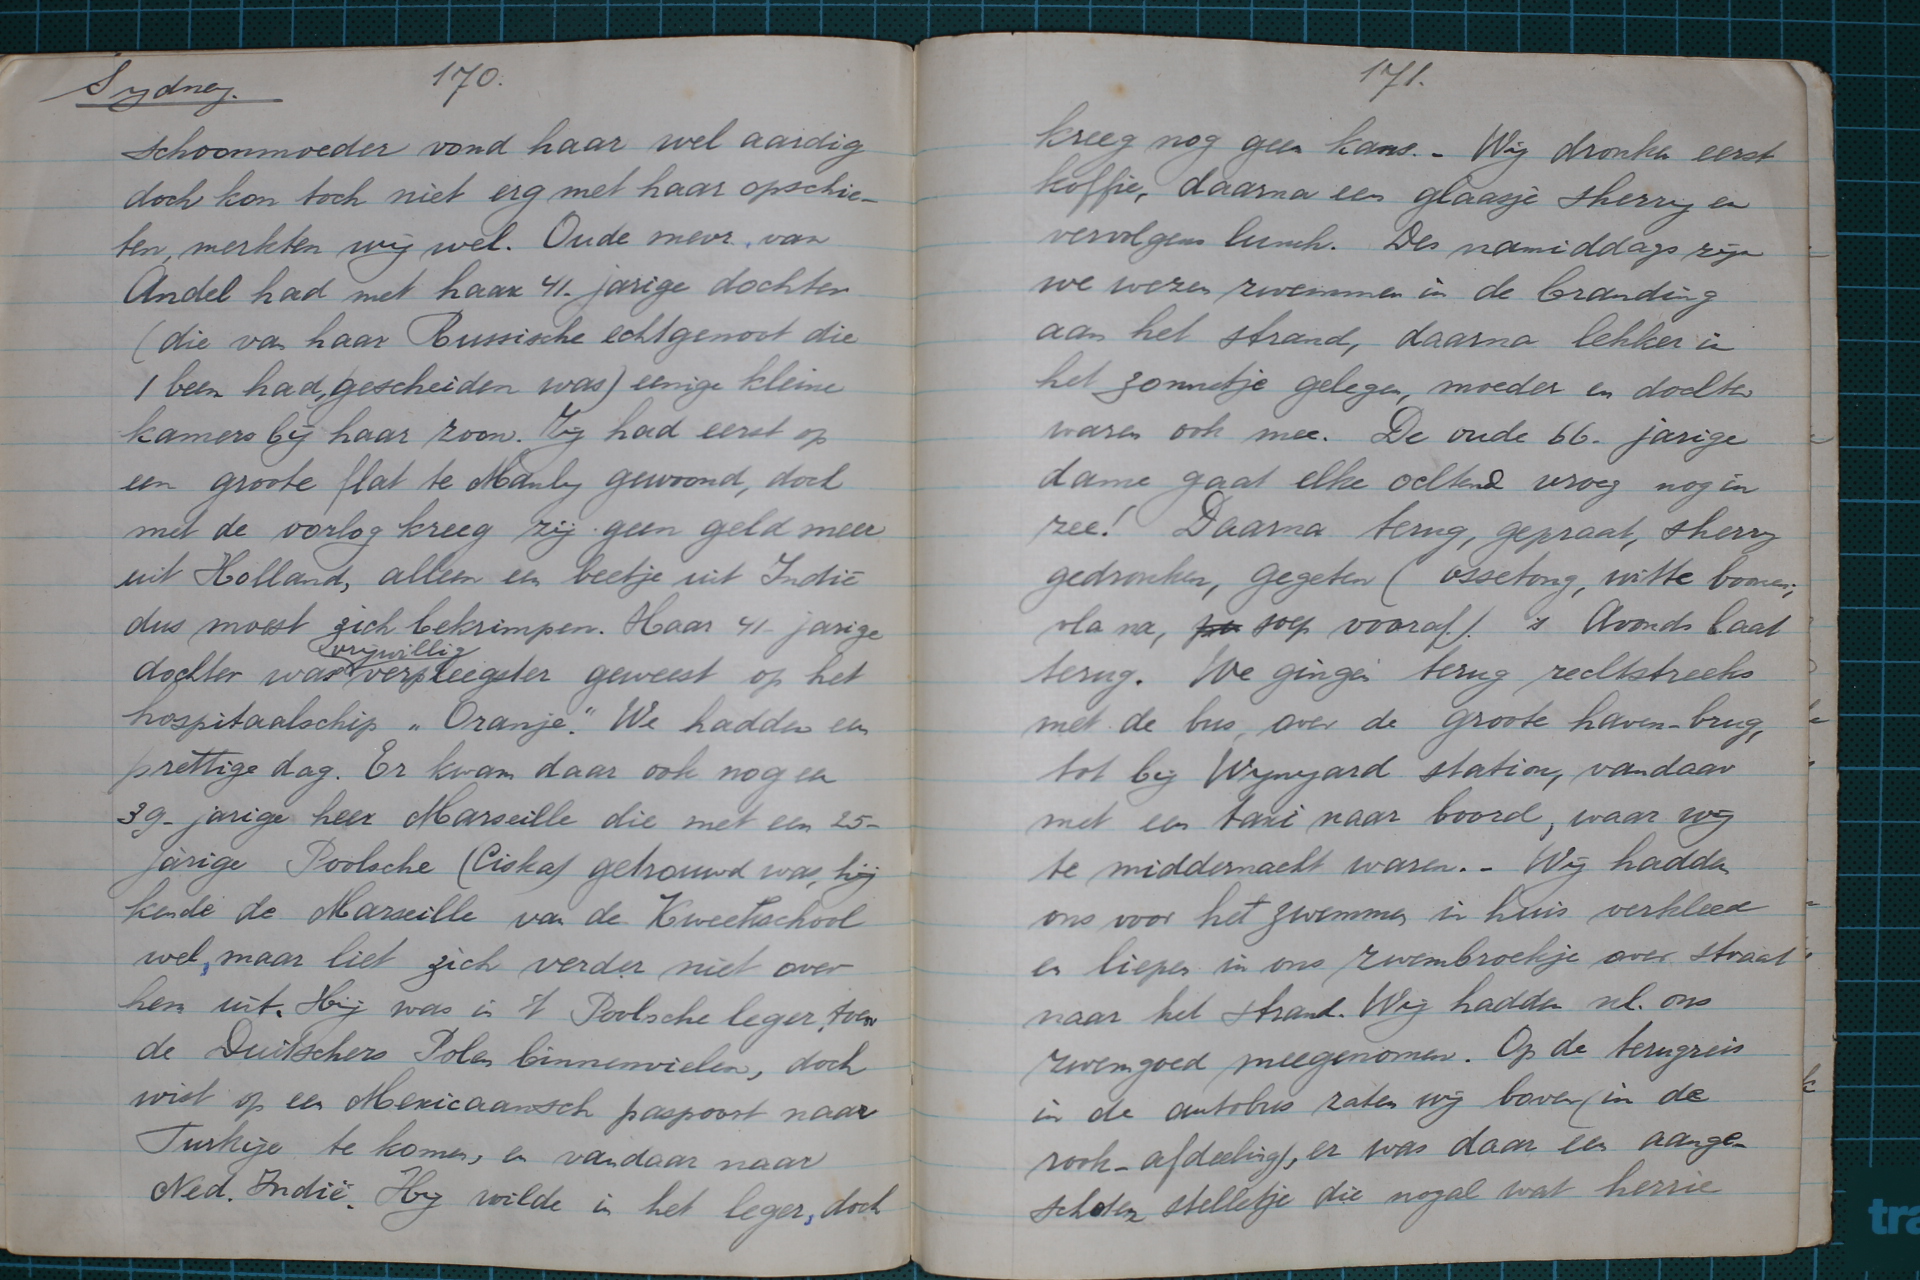 Sydney.
170.
schoonmoeder vond haar wel aardig
doch kon toch niet erg met haar opschie-
ten, merkten wij wel. Oude mevr. van
Andel had met haar 41-jarige dochter
(die van haar Russische echtgenoot die
1 been had, gescheiden was) eenige kleine
kamers bij haar zoon. Zij had eerst op
een groote flat te Manly gewoond, doch
met de oorlog kreeg zij geen geld meer
uit Holland, alleen een beetje uit Indië
dus moest zich bekrimpen. Haar 41-jarige
vrijwillig
dochter was verpleegster geweest op het
hospitaalschip „Oranje". We hadden een
prettige dag. Er kwam daar ook nog een
39-jarige heer Marseille die met een 25-
jarige Poolsche (Ciska) getrouwd was, hij
kende de Marseille van de Kweekschool
wel, maar liet zich verder niet over
hem uit. Hij was in 't Poolsche leger, toen
de Duitschers Polen binnenvielen, doch
wist op een Mexicaansch paspoort naar
Turkije te komen, en vandaar naar
Ned. Indië. Hij wilde in het leger, doch
171.
kreeg nog geen kans. - Wij dronken eerst
koffie, daarna een glaasje sherry en
vervolgens lunch. Des namiddags zijn
we wezen zwemmen in de branding
aan het strand, daarna lekker in
het zonnetje gelegen, moeder en dochter
waren ook mee. De oude 66-jarige
dame gaat elke ochtend vroeg nog in
zee! Daarna terug, gepraat, sherry
gedronken, gegeten (ossetong, witte boonen,
vla na, soep vooraf). 's Avonds laat
terug. We gingen terug rechtstreeks
met de bus, over de groote haven-brug,
tot bij Wynyard station, vandaar
met een taxi naar boord, waar wij
te middernacht waren. - Wij hadden
ons voor het zwemmen in huis verkleed
en liepen in ons zwembroekje over straat
naar het strand. Wij hadden nl. ons
zwemgoed meegenomen. Op de terugreis
in de autobus zaten wij boven (in de
rook-afdeeling), er was daar een aange-
schoten stelletje die nogal wat herrie
tra